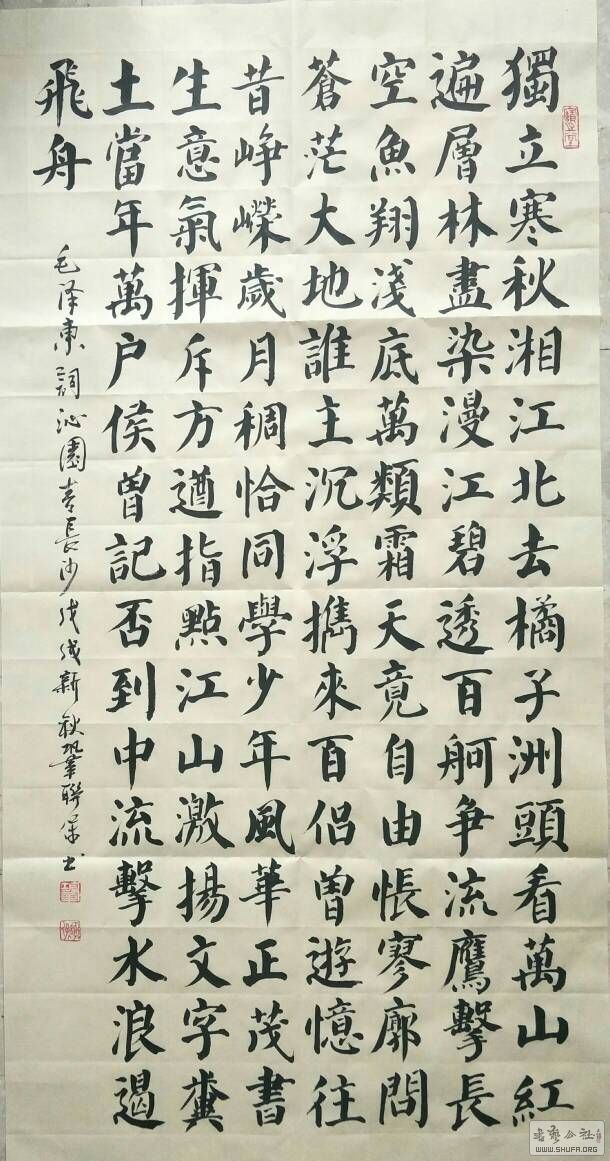 獨立寒秋湘江北去橘子洲頭看萬山紅
遍層林盡染漫江碧透百舸爭流鷹擊長
空魚翔淺底萬類霜天竟自由悵寥廓問
蒼茫大地誰主沉浮攜來百侶曾遊憶往
昔崢嶸歲月稠恰同學少年風華正茂書
生意氣揮斥方遒指點江山激揚文字糞
土當年萬户侯曾記否到中流擊水浪遏
飛舟
毛泽東詞沁園春長沙戊戌新秋巩肇聯书
WWW.SHUFA.ORG